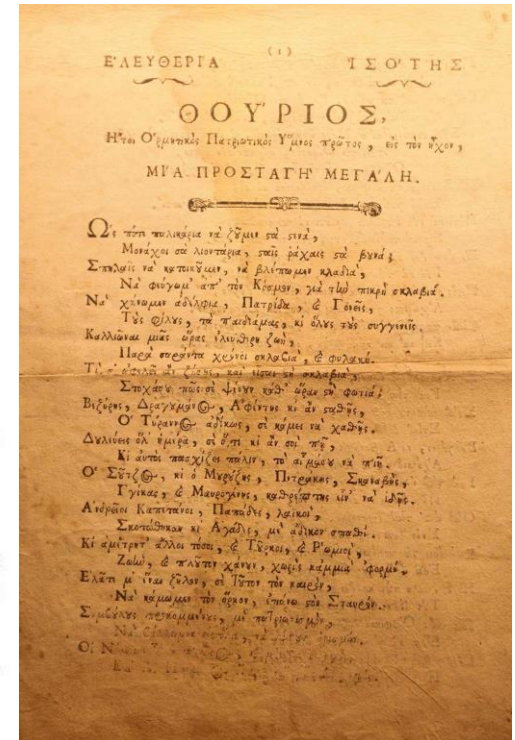 (1)
ἘΛΕΥΘΕΡΙΑ ἸΣΟΤΗΣ
ΘΟΥΡΙΟΣ,
Ἤτοι Ὁρμητικὸς Πατριωτικὸς Ὕμνος πρῶτος, εἰς τὸν ἦχον,
ΜΙΑ ΠΡΟΣΤΑΓΗ ΜΕΓΑΛΗ.
Ὣς πότε παλικάρια νὰ ζῶμεν στὰ στενά,
Μονάχοι σὰ λιοντάρια, σταῖς ράχαις στὰ βυνά;
Σπηλαῖς νὰ κατικῶμεν, νὰ βλέπωμεν κλαδιά,
Νὰ φεύγωμ' ἀπ' τὸν Κόσμον, γιὰ τὴν πικρὴ σκλαβιά.
Νὰ χάνωμεν ἀδέλφια, Πατρίδα, καὶ Γονεῖς,
Τοὺς φίλους, τὰ παιδιάμας, κι ὅλους τοὺς συγγενεῖς.
Καλλιῶναι μιᾶς ὥρας ἐλεύθερη ζωή,
Παρὰ σαράντα χρόνοι σκλαβιά, καὶ φυλακή.
Τί σ' ὀφελεῖ ἂν ζήσῃς, καὶ εἶσαι στὴ σκλαβιά,
Στοχάσου πῶς σὲ ψένουν καθ' ὥραν στὴ φωτιά;
Βεζύρης, Δραγουμάνος, Ἀφέντης κι ἂν σταθῇς,
Ὁ Τύραννος ἀδίκως, σὲ κάμει νὰ χαθῇς.
Δουλεύεις ὅλ' ἡμέρα, σὲ ὅ,τι κι ἂν σοὶ πῇ,
Κι αὐτὸς πασχίζει πάλιν, τὸ αἷμάσου νὰ πιῇ.
Ὁ Σοῦτζος, κι ὁ Μουρούζης, Πετράκης, Σκαναβῆς,
Γγίκας, καὶ Μαυρογένης, καθρέπτης εἶν' νὰ ἰδῇς.
Ἀνδρεῖοι Καπιτάνοι, Παπάδες, λαϊκοί,
Σκοτώθηκαν κι Ἀγάδες, μὲ ἄδικον σπαθί.
Κι ἀμέτρητ' ἄλλοι τόσοι, καὶ Τοῦρκοι, καὶ Ῥωμιοί,
Ζωήν, καὶ πλοῦτον χάνουν, χωρὶς κάμμιὰ 'φορμή.
Ἐλᾶτε μ' ἕναν ζῆλον, σὲ τοῦτον τὸν καιρόν,
Νὰ κάμωμεν τὸν ὅρκον, ἐπάνω στὸν Σταυρόν.
Συμβούλους προκομμένους, μὲ πατριωτισμόν,